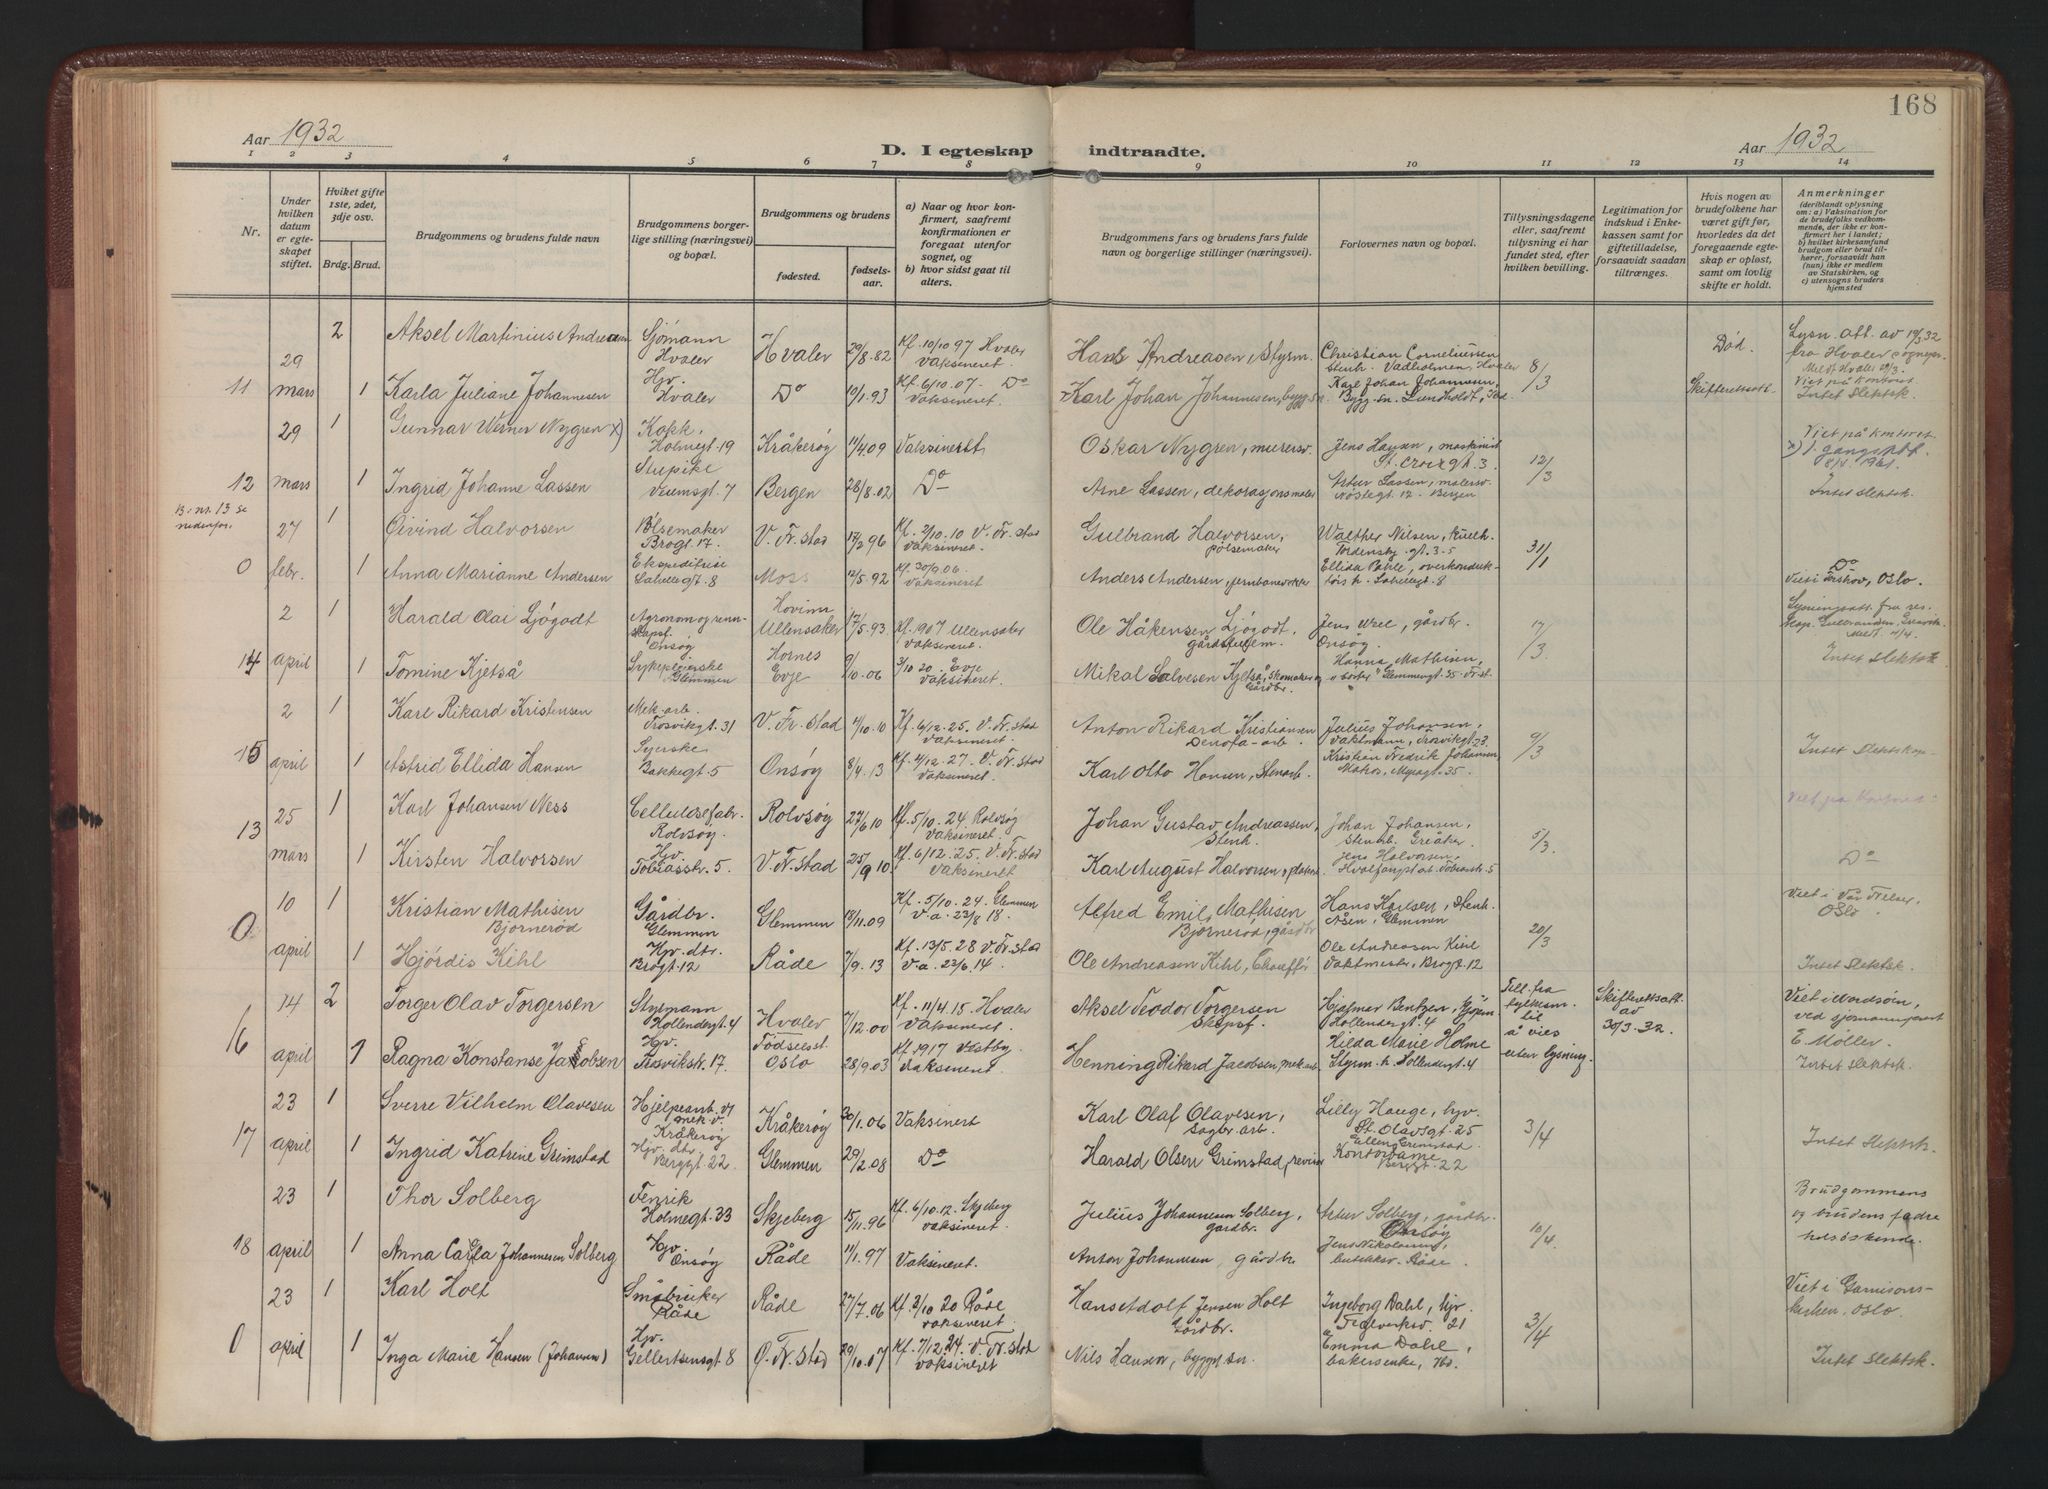 168
Aar 1932
D. I egteskap indtraadte.
Aar 1932
1 2 3 4 5 6 7 8 9 10 11 12 13 14
Nr.
Under hvilken datum er egteskapet stiftet.
Hviket gifte 1ste, 2det, 3dje osv.
Brdg. Brud.
Brudgommens og brudens fulde navn
Brudgommens borgerlige stilling (næringsvei) og bopæl.
Brudgommens og brudens
fødested.
fødselsaar.
a) Naar og hvor konfirmert, saafremt konfirmationen er foregaat utenfor sognet, og
b) hvor sidst gaat til alters.
Brudgommens fars og brudens fars fulde navn og borgerlige stillinger (næringsvei).
Forlovernes navn og bopæl.
Tillysningsdagene eller, saafremt tillysning ei har fundet sted, efter hvilken bevilling.
Legitimation for indskud i Enkekassen samt for giftetilladelse, forsaavidt saadan tiltrænges.
Hvis nogen av brudefolkene har været gift før, hvorledes da det foregaaende egteskap er opløst, samt om lovlig skifte er holdt.
Anmerkninger (deriblandt oplysning om: a) Vaksination for de brudefolks vedkommende, der ikke er konfirmert her i landet; b) hvilket kirkesamfund brudgom eller brud tilhører, forsaavidt han (hun) ikke er medlem av Statskirken, og c) utensogns bruders hjemsted
2 Aksel Martinius Andreasen Sjømann Hvaler Hvaler 29/8.82 Kf. 10/10 97 Hvaler Vaksineret Hans Andreasen, Styrm. Christian Corneliussen Stenh. Vadholmen, Hvaler 8/3 Død. Lysn. att. av 19/3 32 fra Hvaler sognepr. Meldt Hvaler 29/3.
11 29 mars 1 Karla Juliane Johannesen Hjv. Hvaler Do 19/1.93 Kf. 6/10.07 - Do Vaksineret Karl Johan Johannesen, bygg.sn. Karl Johan Johannesen, Bygg.sn. Lundholdt, Skifterettsatt. Viet på kontoret. Intet Slektsk.
29 1 Gunnar Werner Nygren x) Kokk, Holmegt. 19 Kråkerøy 11/4.09 Vaksineret Oskar Nygren, murersv. Jens Hansen, maskinist St. Croix gt. 3. 12/3 Viet på kontoret. x) 8/4. 1961.
12 mars 1 Ingrid Johanne Lassen Veumsgt. 7 Bergen 28/8.02 Do Arne Lassen, dekorasjonsmaler Artur Lassen, malersv. Nöstegt. 12 - Bergen Intet slektsk.
B: nr. 13 se nedenfor.
27 1 Øivind Halvorsen Pølsemaker Brogt. 17. V. Fr. stad 17/2 96 Kf. 2/10.10 V. Fr. stad Vaksineret. Gulbrand Halvorsen, pølsemaker Walther Nilsen, Tordensk. gt. 3-5 31/1
0 febr. 1 Anna Marianne Andersen Ekspeditrise gt. 8 Moss 12/5.92 Kf. 30/9.06. Vaksineret Anders Andersen, jernbanearbeider Ellida Pahle, overkonduktørs h. gt. 8 Do Viet i Oslo.
2 1 Harald Olai Ljøgodt Agronom og Onsøy Hovin Ullensaker 17/5.93. Kf. 1907 Ullensaker Vaksineret Ole Håkensen Ljøgodt, gårdbr. Jens Wiel, gårdbr. Onsøy. 17/3.
14 april 1 Tomine Kjetså Sykepleierske Glemmen Hornes Evje 9/10.06 3/10 20. Evje Vaksineret. Mikal Salvesen Kjetså, Skomaker og Gårdbr. Hanna Mathisen, Glemmengt. 35. Fr.st. Intet slektsk
2 1 Karl Rikard Kristensen Mek. arb. Trosvikgt. 31 V. Fr. Stad 4/10.10 Kf. 6/12.25. V. Fr. stad Vaksineret. Anton Rikard Kristiansen Denofa-arb. Julius Johansen, Vaktmann, Trosvikgt. 23 9/3
15 april 1 Astrid Ellida Hansen Syerske Bakkegt. 5 Onsøy 8/4.13 Kf. 4/12.27. V. Fr. Stad Vaksineret. Karl Otto Hansen, Stenarb. Kristian Fredrik Johansen, Myragt. 35. Intet Slektskap
13 25 1 Karl Johansen Ness Cellulosefabr. Rolvsøy. Rolvsøy 27/6 10 Kf. 5/10.24 Rolvsøy Vaksineret. Johan Gustav Andreassen, Stenh. Johan Johansen, Stenarb. Greåker. 5/3. Viet på kontoret.
mars 1 Kirsten Halvorsen Hjv. Tobiasstr. 5. V. Fr. Stad 25/9 10 Kf. 6/12.25. V. Fr. Stad Vaksineret Karl August Halvorsen, Jens Halvorsen, Hvalfangstarb. Tobiasstr. 5 Do
0 10 1 Kristian Mathisen Bjørnerød Gårdbr. Glemmen Glemmen 18/11.09 Kf. 5/10.24. Glemmen V.a. 23/8 18. Alfred Emil Mathisen Bjørnerød, gårdbr Hans Karlsen, Stenh. Åsen, Glemmen 20/3 Viet i Vår Frelser, Oslo.
april 1 Hjørdis Kihl Hjv. dtr. Brogt. 12 Råde 7/9.13 Kf. 13/5.28 V. Fr. stad V.a. 23/6.14. Ole Andreasen Kihl, Chauffør Ole Andreasen Kihl Vaktmester, Brogt. 12 Intet Slektsk.
16 14 2 Torger Olav Torgersen Styrmann Hollendergt. 4 Hvaler 7/12.00 Kf. 11/4.15. Hvaler Vaksineret. Aksel Teodor Torgersen Skipsf. Hjalmar Bentzen, Hollendergt. 4 Till. fra fylkesm. til å vies uten lysning. Skifterettsatt. av 30/3-32. Viet i Nordsöen, ved sjømannsprest E. Möller.
april 1 Ragna Konstanse Jakobsen Hjv. Trosvikstr. 17. Fødselsst. Oslo 28/9.03 Kf. 1917 Vestby. Vaksineret. Henning Rikard Jacobsen, mek.arb. Hilda Marie Holme Styrm. h. Hollendergt. 4 Intet Slektsk.
17 23 1 Sverre Vilhelm Olavesen Hjelpearb. v/ mek. v. Kråkerøy Kråkerøy 30/1.06 Vaksinert Karl Olaf Olavesen, Sagbr. arb. Lilly Hauge, hjv. St. Olavsgt. 25 3/4
april 1 Ingrid Katrine Grimstad Hjv. dtr. Berggt. 22. Glemmen 29/2.08 Do Harald Olsen Grimstad, revisor Ellen Grimstad Kontordame Berggt. 22 Intet Slektsk.
23 1 Thor Solberg Fenrik Holmegt. 33 Skjeberg 15/11.96 Kf. 6/10.12. Skjeberg Vaksineret. Julius Johannesen Solberg, gårdbr. Artur Solberg, gårdbr. Onsøy 10/4. Brudgommens og brudens fadre halvsöskende.
18 april 1 Anna Carla Johannesen Solberg Hjv. Onsøy Råde 11/1.97 Vaksineret. Anton Johannesen, gårdbr. Jens Nikolaisen, Råde.
23 1 Karl Holt Småbruker Råde Råde 27/7.06 Kf. 3/10 20 Råde Vaksineret. Hans Adolf Jensen Holt Gårdbr. Ingeborg Dahl, hjv. Teglverksv. 21 3/4 Viet i Garnisonskirken, Oslo.
0 april 1 Inga Marie Hansen (Johansen) Hjv. Gellertsensgt 8 Ø. Fr. stad 29/10.07 Kf. 7/12.24. V. Fr. stad Vaksineret Nils Hansen, byggm. sn. Emma Dahl, bakersenke, Ibd. Intet Slektsk.